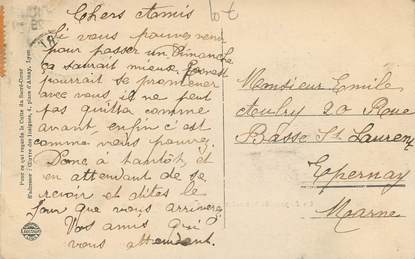 Chers Amis
Si vous pouvez venir
pour passer un Dimanche
ça saurait mieux
pourrait se promener
avec vous, il ne peut
pas quitta comme
avant, enfin c'est
comme vous pouvez.
Donc à bientôt, et
en attendant de se
revoir et dites le
jour que vous arriverez
Vos amis qui
vous attendent.
Monsieur Emile
Aubry 20 Roue
Basse St Laurent
Epernay
Marne
Pour ce qui regarde le Culte du Sacré-Cœur
S'adresser l'Œuvre des Insignes, 6, place d'Ainay, Lyon